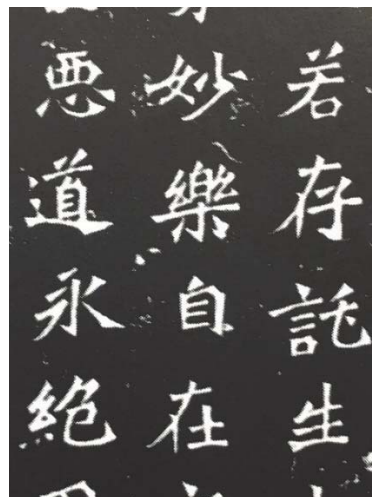 若存託生
妙樂自在
悪道永絶